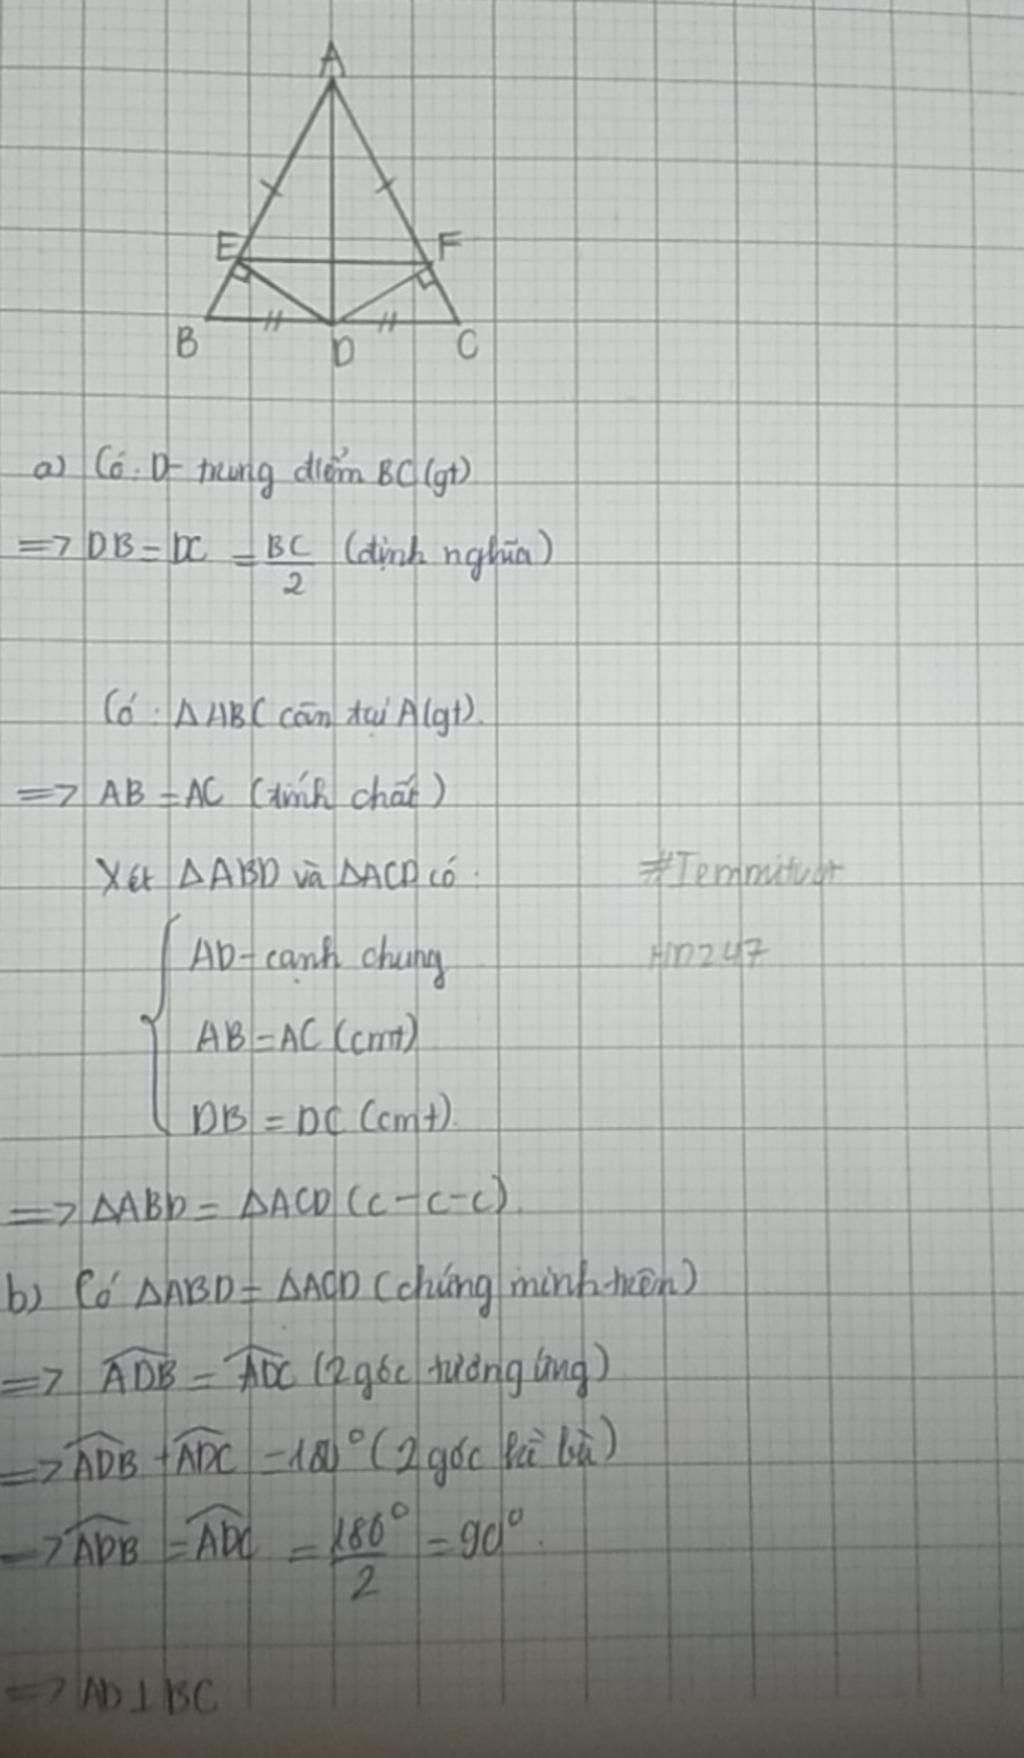 A
E
F
B
D
C
a) Có: D- trung điểm BC (gt)
=> DB = DC = BC/2 (định nghĩa)
Có: ΔABC cân tại A (gt).
=> AB = AC (tính chất)
Xét ΔABD và ΔACD có:
#Temmituot
AD - cạnh chung
HD247
AB = AC (cmt)
DB = DC (cmt).
=> ΔABD = ΔACD (c-c-c).
b) Có ΔABD = ΔACD (chứng minh trên)
=> \widehat{ADB} = \widehat{ADC} (2 góc tương ứng)
=> \widehat{ADB} + \widehat{ADC} = 180° (2 góc kề bù)
=> \widehat{ADB} = \widehat{ADC} = 180°/2 = 90°.
=> AD ⊥ BC